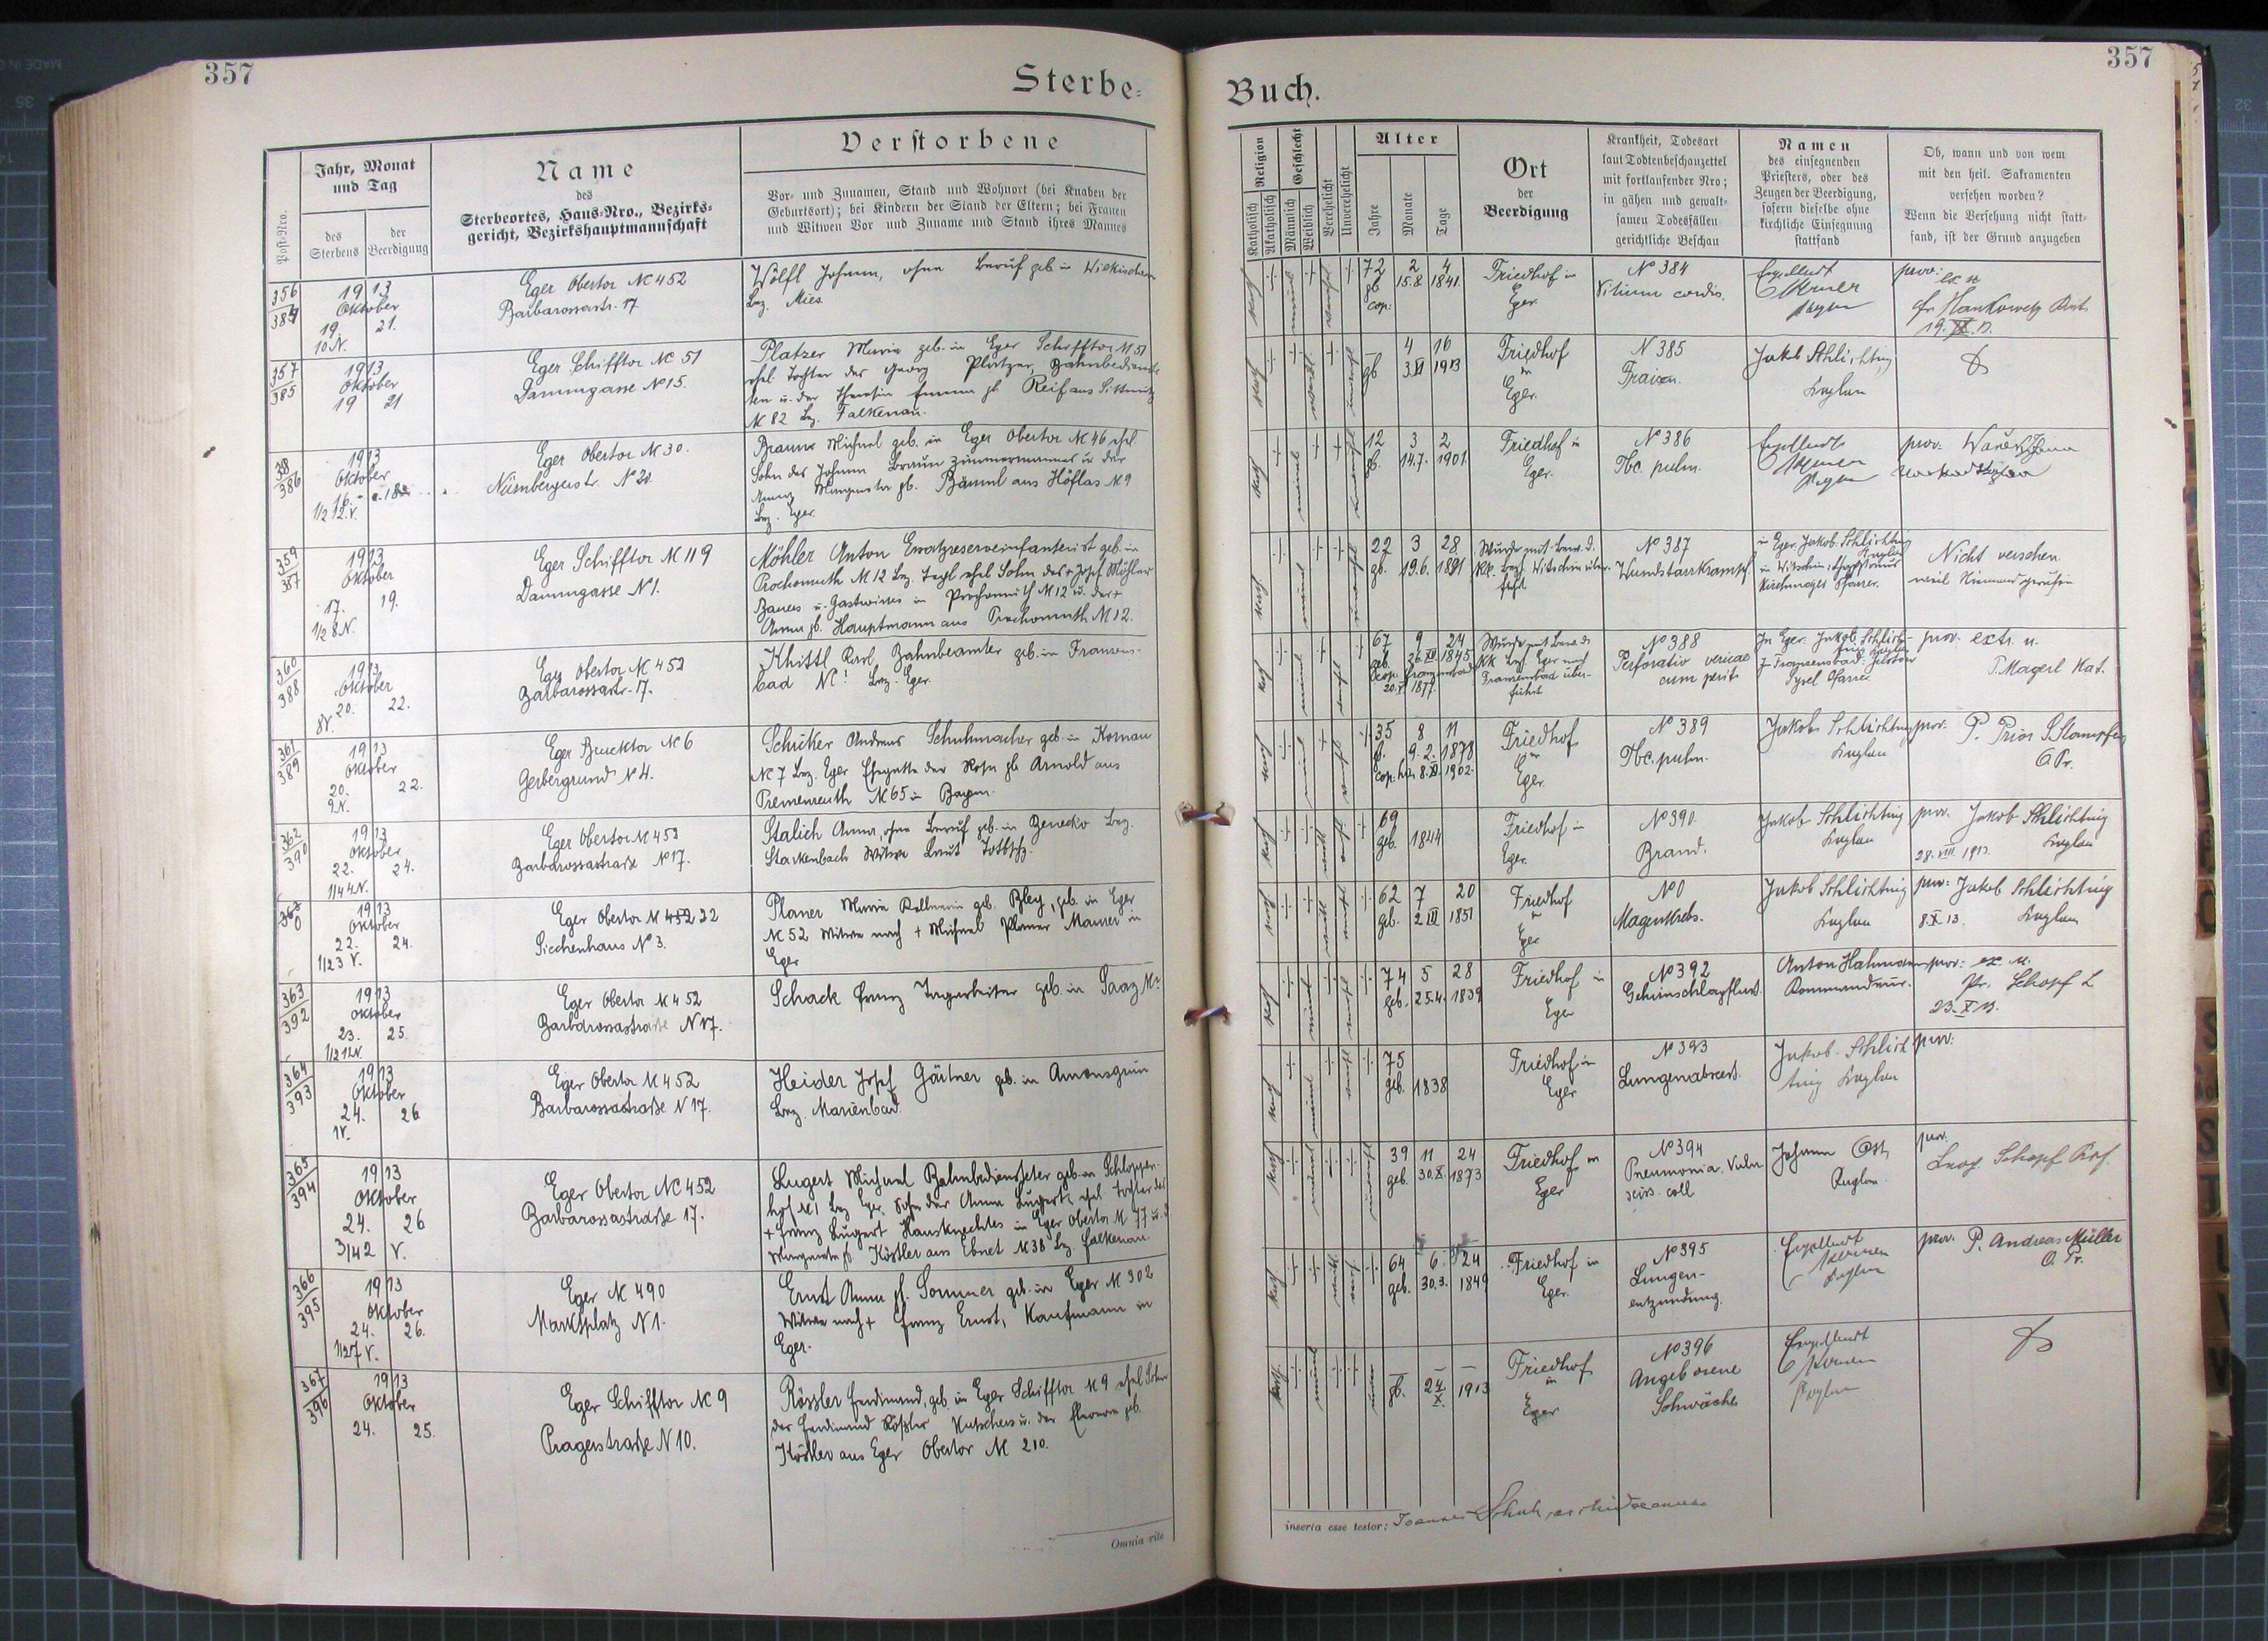 357
Sterbe-
Verstorbene
Post-Nro.
Jahr, Monat
und Tag
des
Sterbens
der
Beerdigung
Name
des
Sterbeortes, Haus-Nro., Bezirks-
gericht, Bezirkshauptmannschaft
Vor- und Zunamen, Stand und Wohnort (bei Knaben der
Geburtsort); bei Kindern der Stand der Eltern; bei Frauen
und Witwen Vor und Zuname und Stand ihres Mannes
356
384
1913
Oktober
19. 21.
10 N.
Eger Obertor № 452
Barbarossastr. 17
Wölfl Johann, ohne Beruf geb in Wilkischen
Bez. Mies.
357
385
1913
Oktober
19 21
Eger Schifftor № 51
Dammgasse № 15.
Platzer Maria geb. in Eger Schifftor № 51
ehel. Tochter des Georg Platzer, Bahnbedienste
ten u. der Theresia Emma gb. Reif aus
№ 82 Bez. Falkenau.
386
1913
Oktober
16.
1/2 12. V.
Eger Obertor № 30.
Nürnbergerstr. № 20.
Braun Michael geb. in Eger Obertor № 46 ehel.
Sohn des Johann Braun Zimmermannes u. der
Margareta gb. Bäuml aus Höflas № 9
Bez. Eger.
359
387
1913
Oktober
17. 19.
1/2 8 N.
Eger Schifftor № 119
Dammgasse № 1.
Möhler Anton Ersatzreserveinfanterist geb. in
Prochomuth № 12 Bez. Tepl ehel Sohn des + Josef Möhler
Bauers u. Gastwirtes in Prochomuth № 12 u. der +
Anna gb. Hauptmann aus Prochomuth № 12.
360
388
1913
Oktober
20. 22.
8 V.
Eger Obertor № 452
Barbarossastr. 17.
Khittl Karl Bahnbeamter geb. in Franzens-
bad № ? Bez. Eger.
361
389
1913
Oktober
20. 22.
9 N.
Eger Brucktor № 6
Gerbergrund № 4.
Schüker Andreas Schuhmacher geb in Kornau
№ 7 Bez. Eger Ehegatte der Rosa gb Arnold aus
Premenreuth № 65 in Bayern.
362
390
1913
Oktober
22. 24.
1/4 4 N.
Eger Obertor № 452
Barbarossastraße № 17.
Stalich Anna, ohne Beruf geb. in Benecko Bez.
Starkenbach Witwe
0
1913
Oktober
22. 24.
1/2 3 V.
Eger Obertor № 22
Siechenhaus № 3.
Planer Maria geb. Bley, geb. in Eger
№ 52 Witwe nach + Michael Planer Maurer in
Eger
363
392
1913
Oktober
23. 25.
1/2 12 N.
Eger Obertor № 452
Barbarossastraße № 17.
Schack Franz Tagarbeiter geb. in Saaz № ?
364
393
1913
Oktober
24. 26
1 V.
Eger Obertor № 452
Barbarossastraße № 17.
Heider Josef Gärtner geb. in Amonsgrün
Bez. Marienbad.
365
394
1913
Oktober
24. 26
3/4 2 V.
Eger Obertor № 452
Barbarossastraße 17.
Lugert Michael Bahnbediensteter geb. in Schloppen-
hof № 1 Bez Eger, Sohn der Anna Lugert, ehel. Tochter des
+ Franz Lugert Hausknechtes in Eger Obertor № 77 u. d
Margareta gb Köstler aus Ebnet № 38 Bez. Falkenau.
366
395
1913
Oktober
24. 26.
1/2 7 V.
Eger № 490
Marktplatz № 1.
Ernst Anna gb. Sommer geb. in Eger № 302
Witwe nach + Franz Ernst, Kaufmann in
Eger.
367
396
1913
Oktober
24. 25.
Eger Schifftor № 9
Pragerstraße № 10.
Rössler Ferdinand, geb. in Eger Schifftor № 9 ehel Sohn
des Ferdinand Rößler Kutschers u. der Eleonora geb.
Köstler aus Eger Obertor № 210.
Omnia rite
Buch.
357
Religion
Katholisch
Akatholisch
Geschlecht
Männlich
Weiblich
Verehelicht
Unverehelicht
Alter
Jahre
Monate
Tage
Ort
der
Beerdigung
Krankheit, Todesart
laut Todtenbeschauzettel
mit fortlaufender Nro;
in gähen und gewalt-
samen Todesfällen
gerichtliche Beschau
Namen
des einsegnenden
Priesters, oder des
Zeugen der Beerdigung,
sofern dieselbe ohne
kirchliche Einsegnung
stattfand
Ob, wann und von wem
mit den heil. Sakramenten
versehen worden?
Wenn die Versehung nicht statt-
fand, ist der Grund anzugeben
72 2 4
gb. 15.8. 1841.
cop:
Friedhof in
Eger.
№ 384
Vitium cordis.
prov:
19.
4 16
gb 3. VI 1913
Friedhof
in
Eger.
№ 385
Fraisen.
Jakob Schlichting
Kaplan
12 3 2
gb. 14.7. 1901.
Friedhof in
Eger.
№ 386
Tbc. pulm.
prov.
22 3 28
gb. 19.6. 1891
Wurde mit Bew. d.
kk. Bezh. Witschin über-
führt.
№ 387
Wundstarrkrampf
in Eger. Jakob Schlichting
Kaplan
in Witschin:
Pfarrer.
Nicht versehen.
weil Niemand gerufen
67 9 24
geb. 26. XII 1845
cop. Franzensbad
20. 1877.
Wurde mit Bew. d.
KK Bezh. Eger nach
Franzensbad über-
führt
№ 388
Perforatio vesicae
cum perit.
In Eger. Jakob Schlich-
ting Kaplan
Pfarrer
prov. extr. u.
P. Magerl Kat.
35 8 11
gb. 9. 2. 1878
cop. 8. XI. 1902.
Friedhof
in
Eger.
№ 389
Tbc. pulm.
Jakob Schlichting
Kaplan
prov. P. Prior S. Stampfer
O. Pr.
69
geb. 1844
Friedhof in
Eger.
№ 390.
Brand.
Jakob Schlichting
Kaplan
prov. Jakob Schlichting
28. VIII 1913. Kaplan
62 7 20
geb. 2 III 1851
Friedhof
in
Eger
№ 0
Magenkrebs.
Jakob Schlichting
Kaplan
prov: Jakob Schlichting
8. X 13. Kaplan
74 5 28
geb. 25.4. 1839
Friedhof in
Eger
№ 392
Gehirnschlagfluss.
Anton Hahmann
Kommandeur.
prov: ex. u.
Pr. Schopf L
23. X 13.
75
geb. 1838
Friedhof in
Eger
№ 393
Lungenabscess.
Jakob Schlich
ting Kaplan
prov:
39 11 24
geb. 30. X. 1873
Friedhof in
Eger
№ 394
Pneumonia. Vuln
sciss. coll
Johann Ost,
Kaplan
prov.
Leop. Schopf Prof.
64 6 24
geb. 30.3. 1849
Friedhof in
Eger.
№ 395
Lungen-
entzündung.
Kaplan
prov. P. Andreas Müller
O. Pr.
gb. 24 1913
X.
Friedhof
in
Eger
№ 396
Angeborene
Schwäche
Kaplan
inserta esse testor: Joannes Schuh, archidecanus